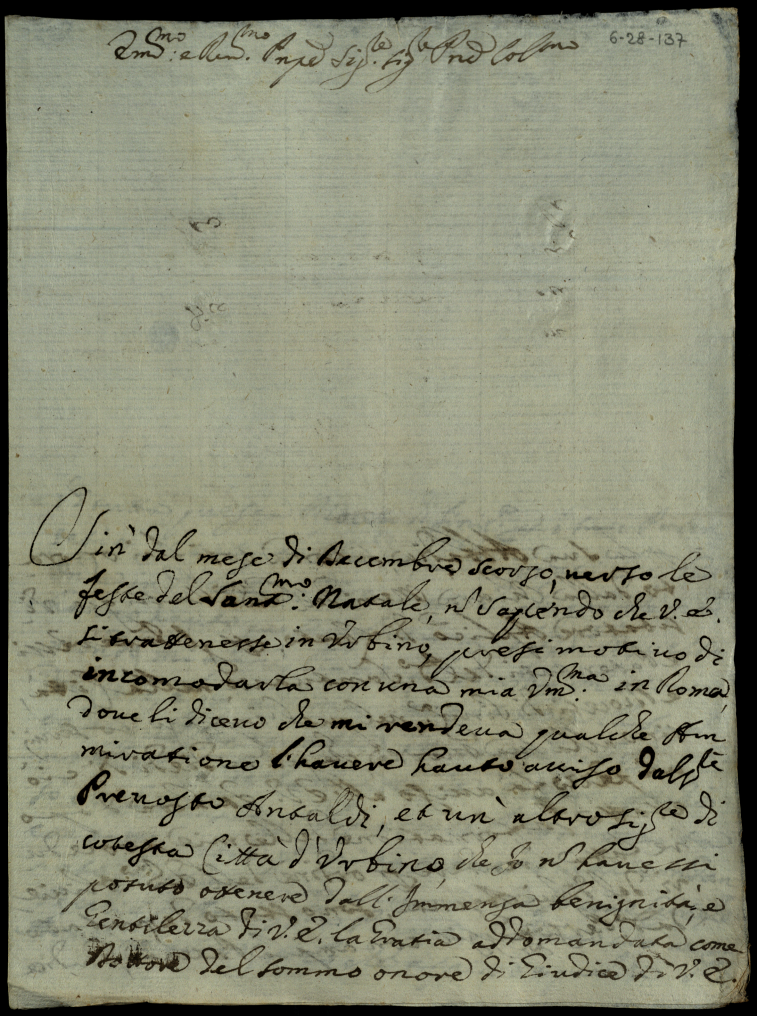 Emmo: e Revmo. Pnpe Sigre. Sigre Pne Colmo
6-28-137
Sin' dal mese di Decembre scorso, verso le
feste del Santmo: Natale, n' sapendo che V. E.
si trattenesse in Urbino, presi motivo di
incomodarla con una mia Vmma: in Roma,
dove li dicevo che mi rendeva qualche Am
miratione l'havere hauto aviso dal Sigre
Prevosto Antaldi, et un' altro Sigre di
cotesta Città d'Urbino, che Io n' havessi
potuto ottenere dall' Immensa benignità, e
Gentilezza di V. E. la Gratia addomandata come
Dottore del sommo onore di Giudice di V. E.